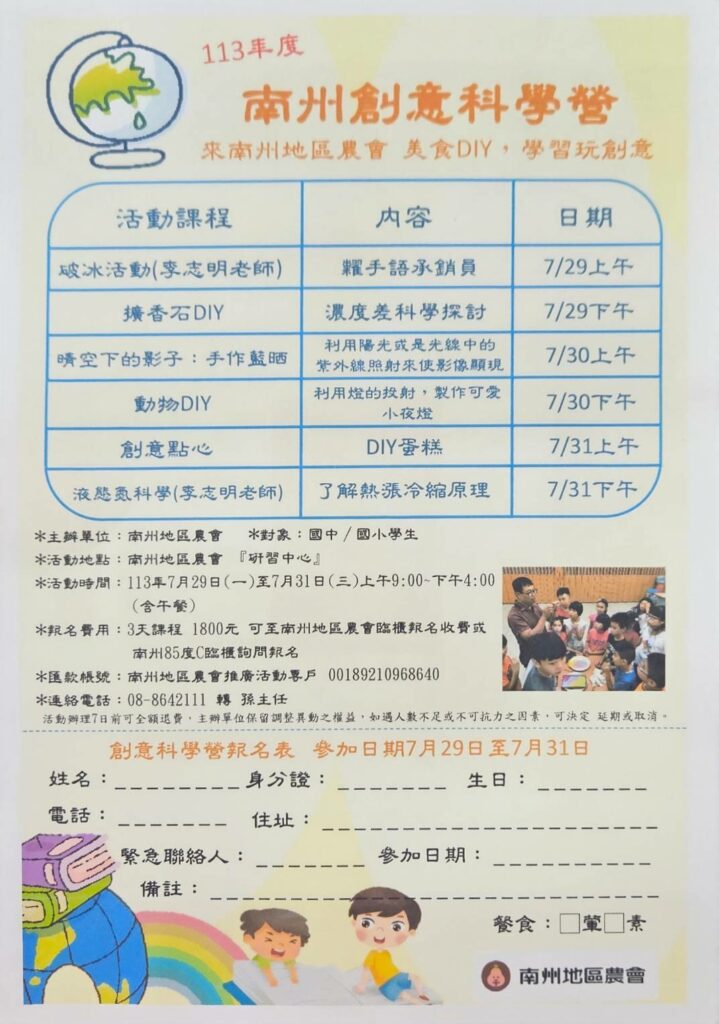 113年度
南州創意科學營
來南州地區農會 美食DIY，學習玩創意
活動課程 內容 日期
破冰活動(李志明老師) 糶手語承銷員 7/29上午
擴香石DIY 濃度差科學探討 7/29下午
晴空下的影子：手作藍晒 利用陽光或是光線中的紫外線照射來使影像顯現 7/30上午
動物DIY 利用燈的投射，製作可愛小夜燈 7/30下午
創意點心 DIY蛋糕 7/31上午
液態氮科學(李志明老師) 了解熱漲冷縮原理 7/31下午
*主辦單位：南州地區農會 *對象：國中/國小學生
*活動地點：南州地區農會 『研習中心』
*活動時間：113年7月29日(一)至7月31日(三)上午9:00~下午4:00
(含午餐)
*報名費用：3天課程 1800元 可至南州地區農會臨櫃報名收費或
南州85度C臨櫃詢問報名
*匯款帳號：南州地區農會推廣活動專戶 00189210968640
*連絡電話：08-8642111 轉 孫主任
活動辦理7日前可全額退費，主辦單位保留調整異動之權益，如遇人數不足或不可抗力之因素，可決定 延期或取消。
創意科學營報名表 參加日期7月29日至7月31日
姓名：_________ 身分證：________ 生日：________
電話：________ 住址：________________________
緊急聯絡人：________ 參加日期：____________
備註：________________________________
餐食：□葷□素
南州地區農會